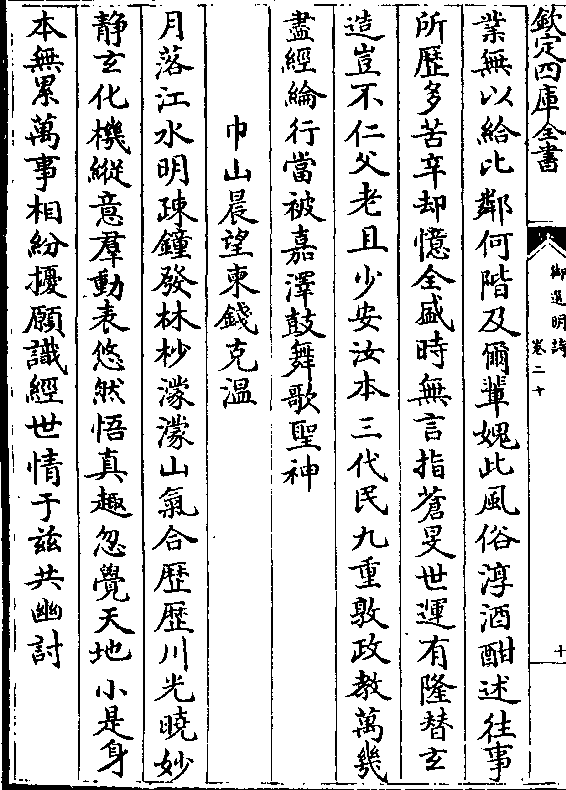 欽定四庫全書
御選明詩
卷二十
十
業無以給比鄰何階及爾輩媿此風俗淳酒酣述往事
所歷多苦辛却憶全盛時無言指蒼旻世運有隆替玄
造豈不仁父老且少安汝本三代民九重敦政教萬幾
盡經綸行當被嘉澤鼓舞歌聖神
巾山晨望柬錢克溫
月落江水明疎鐘發林杪濛濛山氣合歷歷川光曉妙
靜玄化機縱意羣動表悠然悟真趣忽覺天地小是身
本無累萬事相紛擾願識經世情于兹共幽討